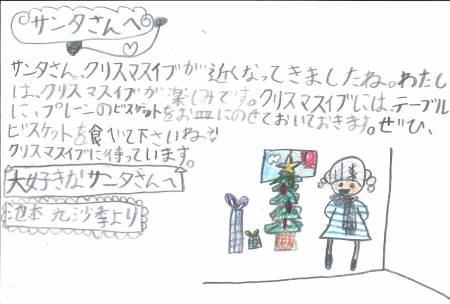 サンタさんへ
サンタさん、クリスマスイブが近くなってきましたね。わたし
は、クリスマスイブが楽しみです。クリスマスイブには、テーブル
に、プレーンのビスケットをお皿にのせておいておきます。ぜひ、
ビスケットを食べて下さいね!!
クリスマスイブに待っています。
大好きなサンタさんへ
池本 光沙季より